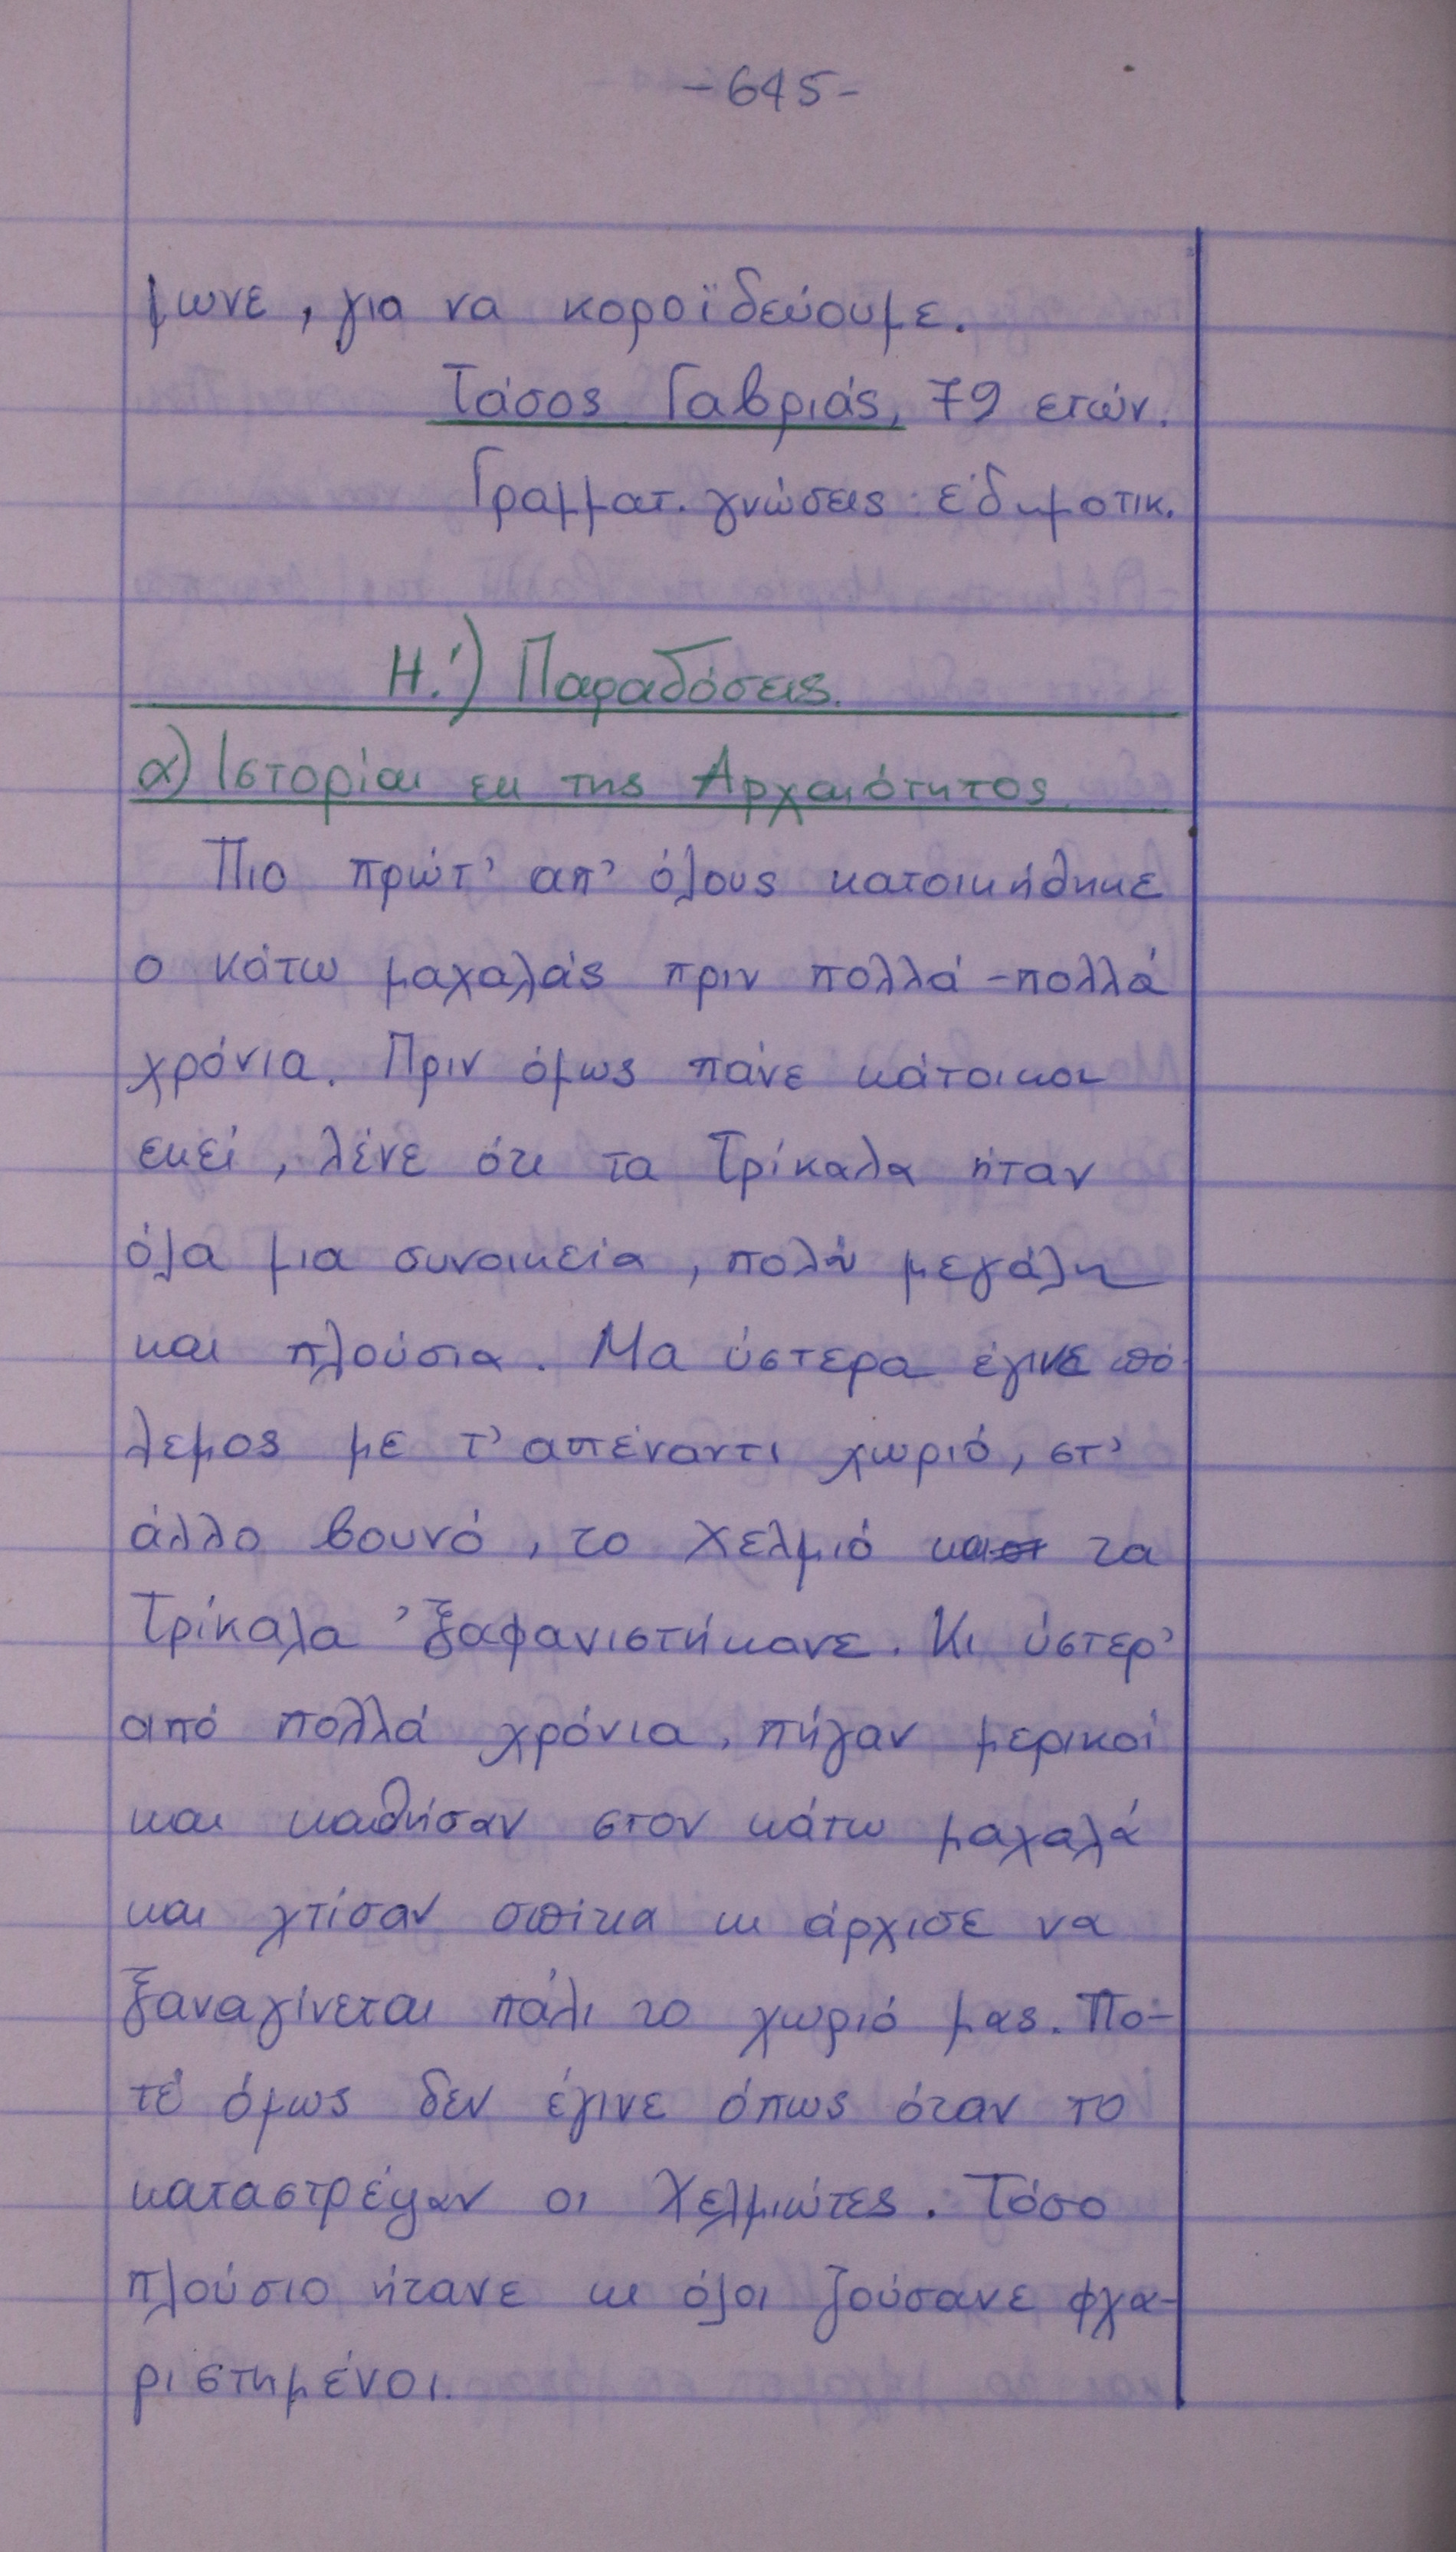 -645-
μωνε, για να κοροϊδεύουμε.
Τάσος Γαβριάς, 79 ετών.
Γραμματ. γνώσεις: έ δημοτικ.
Η.') Παραδόσεις.
α) Ιστορίαι εκ της Αρχαιότητος.
Πιο πρώτ' απ' όλους κατοικήθηκε
ο κάτω μαχαλάς πριν πολλά-πολλά
χρόνια. Πριν όμως πάνε κάτοικοι
εκεί, λένε ότι τα Τρίκαλα ήταν
όλα μια συνοικεία, πολύ μεγάλη
και πλούσια. Μα ύστερα έγινε πό-
λεμος με τ' απέναντι χωριό, στ'
άλλο βουνό, το Χελμιό και τα
Τρίκαλα 'ξαφανιστήκανε. Κι ύστερ'
από πολλά χρόνια, πήγαν μερικοί
και καθήσαν στον κάτω μαχαλά
και χτίσαν σπίτια κι άρχισε να
ξαναγίνεται πάλι το χωριό μας. Πο-
τέ όμως δεν έγινε όπως όταν το
καταστρέψαν οι Χελμιώτες. Τόσο
πλούσιο ήτανε κι όλοι ζούσανε φχα-
ριστημένοι.